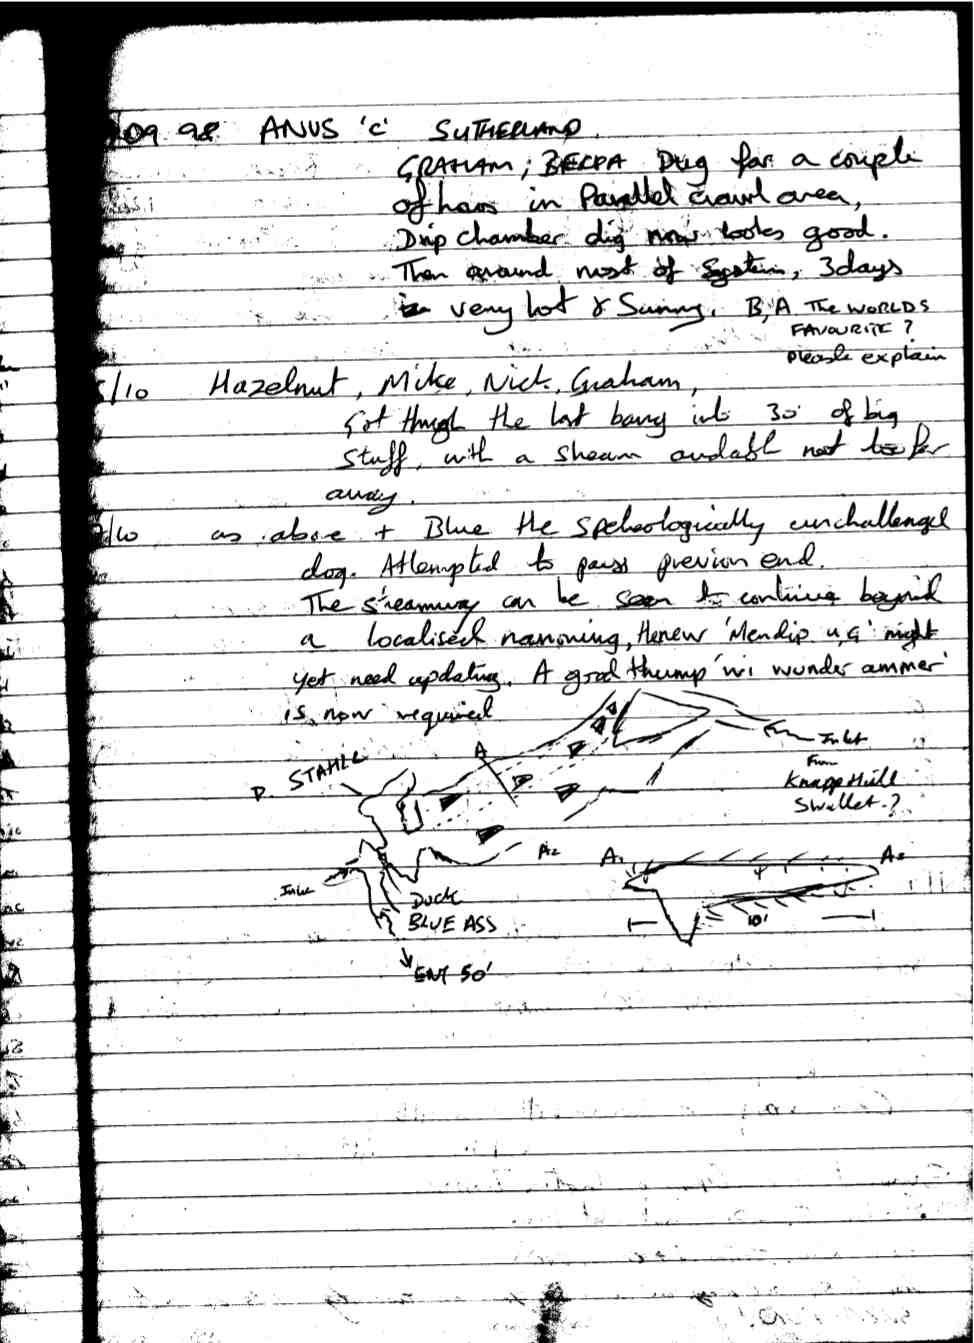 09 98 ANUS 'C' SUTHERLAND.
GRAHAM; BECKA Dug for a couple
of hours in Parallel crawl area,
Drip chamber dig now looks good.
Then around most of System, 3 days
very hot & Sunny. B,A The WORLDS
FAVOURITE?
please explain
/10 Hazelnut, Mike, Nick, Graham,
Got through the last bang into 30' of big
stuff, with a stream audable not too far
away.
/10 as above + Blue the speleologically unchallenged
dog. Attempted to pass previous end.
The streamway can be seen to continue beyond
a localised narrowing, the new 'Mendip U,G' might
yet need updating. A good thump 'wi wunder ammer'
is now required
Inlet
From
Knapp Hill
Swallet.?
A
P. STAHLL
A2
A1
A2
Inlet
Duck
BLUE ASS
10'
ENT 50'